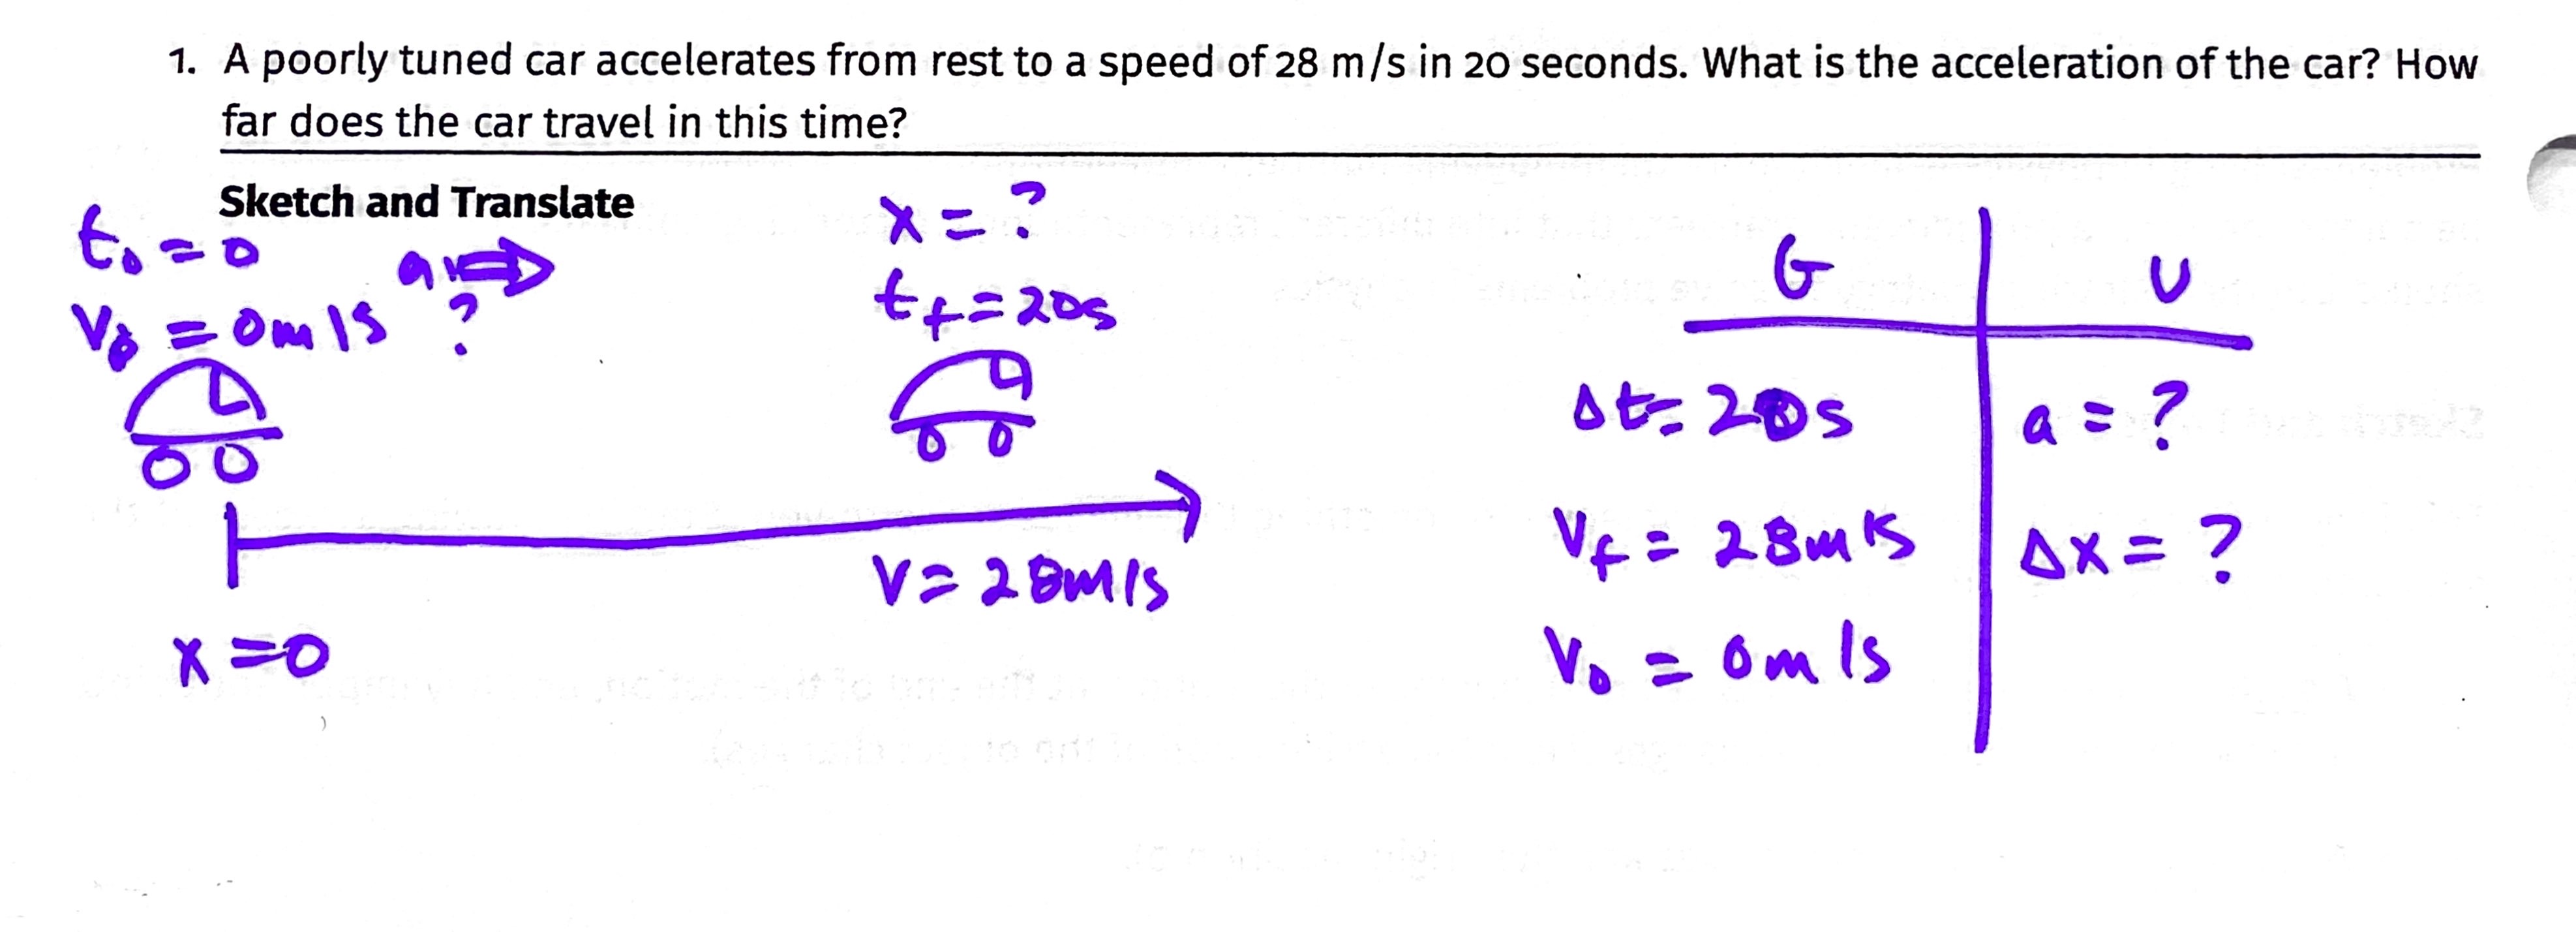 1. A poorly tuned car accelerates from rest to a speed of 28 m/s in 20 seconds. What is the acceleration of the car? How
far does the car travel in this time?
Sketch and Translate
t₀ = 0
a ⇒
v₀ = 0m/s ?
x = ?
t_f = 20s
v = 28m/s
x = 0
G U
Δt = 20s a = ?
v_f = 28m/s Δx = ?
v₀ = 0m/s